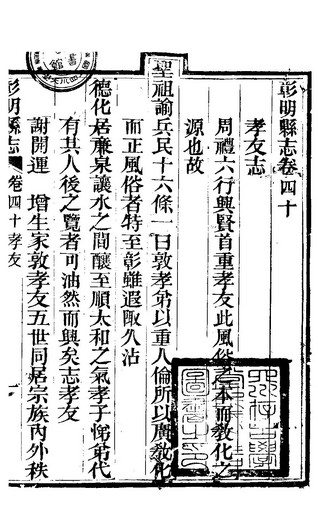 彰明縣志卷四十
孝友志
周禮六行興賢首重孝友此風俗之本而敎化之
源也故
聖祖諭兵民十六條一曰敦孝弟以重人倫所以廣敎化
而正風俗者特至彰雖遐陬久沾
德化居亷泉讓水之間釀至順太和之气孝子悌弟代
有其人後之覽者可油然而興矣志孝友
謝開運　增生家敦孝友五世同居宗族內外秩
彰明縣志　卷四十孝友　一